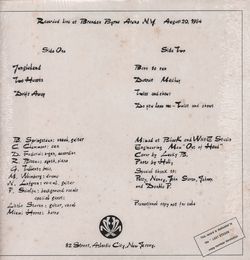 Recorded live at Brendan Byrne Arena N.Y. August 20, 1984
Side One
Jungleland
Two Hearts
Drift Away
Side Two
Born to run
Detroit Medley
Twist and shout
Do you love me - Twist and shout
B. Springsteen: vocal, guitar
C. Clemons: sax
D. Federici: organ, accordion
R. Bittan: synth, piano
G. Tallent: bass
M. Weinberg: drums
N. Lofgren: vocal, guitar
P. Scialfa: background vocals
special guest:
Little Steven: guitar, vocal
Miami Horns: horns
Mixed at Black and White Studio
Engineering Men "Out of Hand"
Cover by Lucky B.
Photo by Holly
Special thank to:
Patty, Nancy, John, Steve, Johnny,
and Double P.
Promotional copy not for sale
82 Street, Atlantic City, New Jersey.